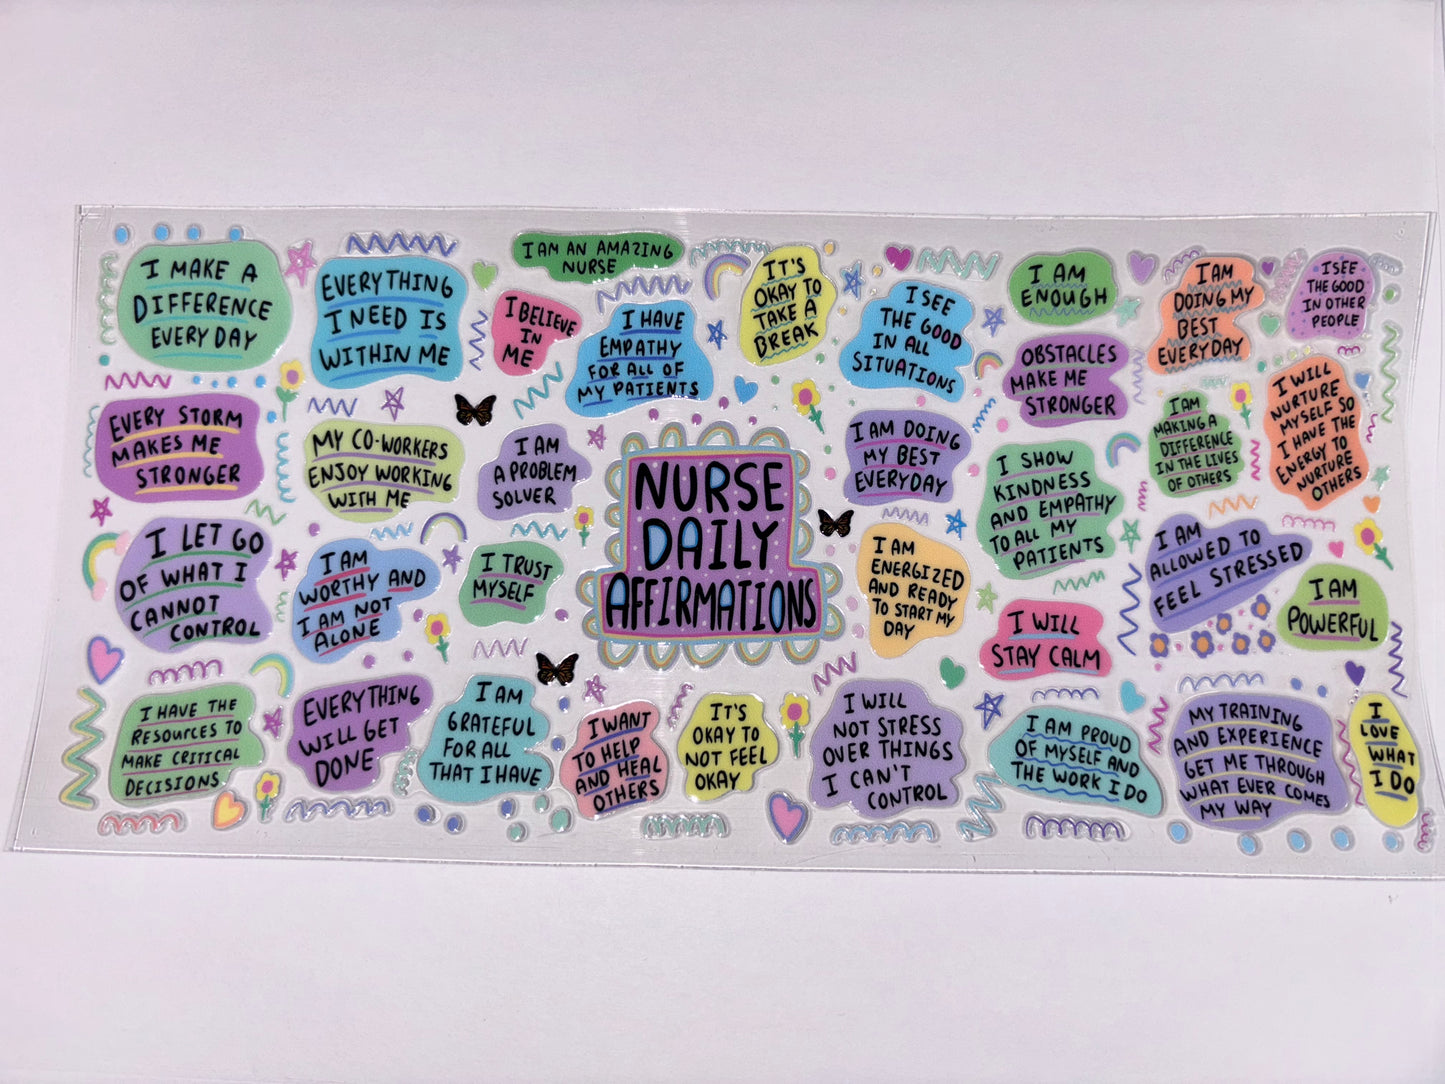 I MAKE A
DIFFERENCE
EVERY DAY
EVERYTHING
I NEED IS
WITHIN ME
I BELIEVE
IN
ME
I AM AN AMAZING
NURSE
I HAVE
EMPATHY
FOR ALL OF
MY PATIENTS
IT'S
OKAY TO
TAKE A
BREAK
I SEE
THE GOOD
IN ALL
SITUATIONS
I AM
ENOUGH
I AM
DOING MY
BEST
EVERYDAY
I SEE
THE GOOD
IN OTHER
PEOPLE
EVERY STORM
MAKES ME
STRONGER
MY CO-WORKERS
ENJOY WORKING
WITH ME
I AM
A PROBLEM
SOLVER
NURSE
DAILY
AFFIRMATIONS
I AM DOING
MY BEST
EVERYDAY
OBSTACLES
MAKE ME
STRONGER
I AM
MAKING A
DIFFERENCE
IN THE LIVES
OF OTHERS
I WILL
NURTURE
MYSELF SO
I HAVE THE
ENERGY TO
NURTURE
OTHERS
I LET GO
OF WHAT I
CANNOT
CONTROL
I AM
WORTHY AND
I AM NOT
ALONE
I TRUST
MYSELF
I AM
ENERGIZED
AND READY
TO START MY
DAY
I SHOW
KINDNESS
AND EMPATHY
TO ALL MY
PATIENTS
I AM
ALLOWED TO
FEEL STRESSED
I AM
POWERFUL
I WILL
STAY CALM
I HAVE THE
RESOURCES TO
MAKE CRITICAL
DECISIONS
EVERYTHING
WILL GET
DONE
I AM
GRATEFUL
FOR ALL
THAT I HAVE
I WANT
TO HELP
AND HEAL
OTHERS
IT'S
OKAY TO
NOT FEEL
OKAY
I WILL
NOT STRESS
OVER THINGS
I CAN'T
CONTROL
I AM PROUD
OF MYSELF AND
THE WORK I DO
MY TRAINING
AND EXPERIENCE
GET ME THROUGH
WHAT EVER COMES
MY WAY
I
LOVE
WHAT
I DO